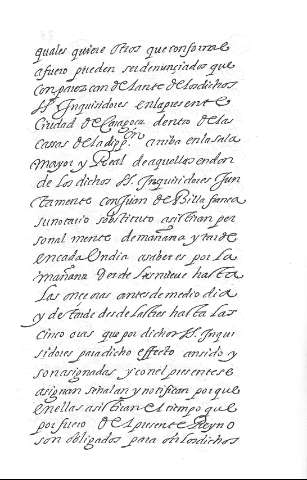 quales quiere otros que conforme
a fuero pueden ser denunçiados que
conparezcan delante de los dichos
S.rs Inquisidores en la presente
Ciudad de Çaragoça dentro de las
casas de la dip.on arriba en la sala
mayor y Real de aquellas en don
de los dichos S.rs Inquisidores Jun
tamente con Juan de Billafranca
su notario substituto asistiran per
sonal mente de mañana y tarde
en cada Un dia a saber es por la
mañana desde las nueve hasta
las once oras antes de medio dia
y de tarde desde las tres hasta las
cinco oras que por dichos S.rs Inqui
sidores para dicho effecto an sido y
son asignadas y con el presente se
asignan señalan y notifican por que
en ellas asistiran el tiempo que
por fuero del presente Reyno
son obligados para oir los dichos